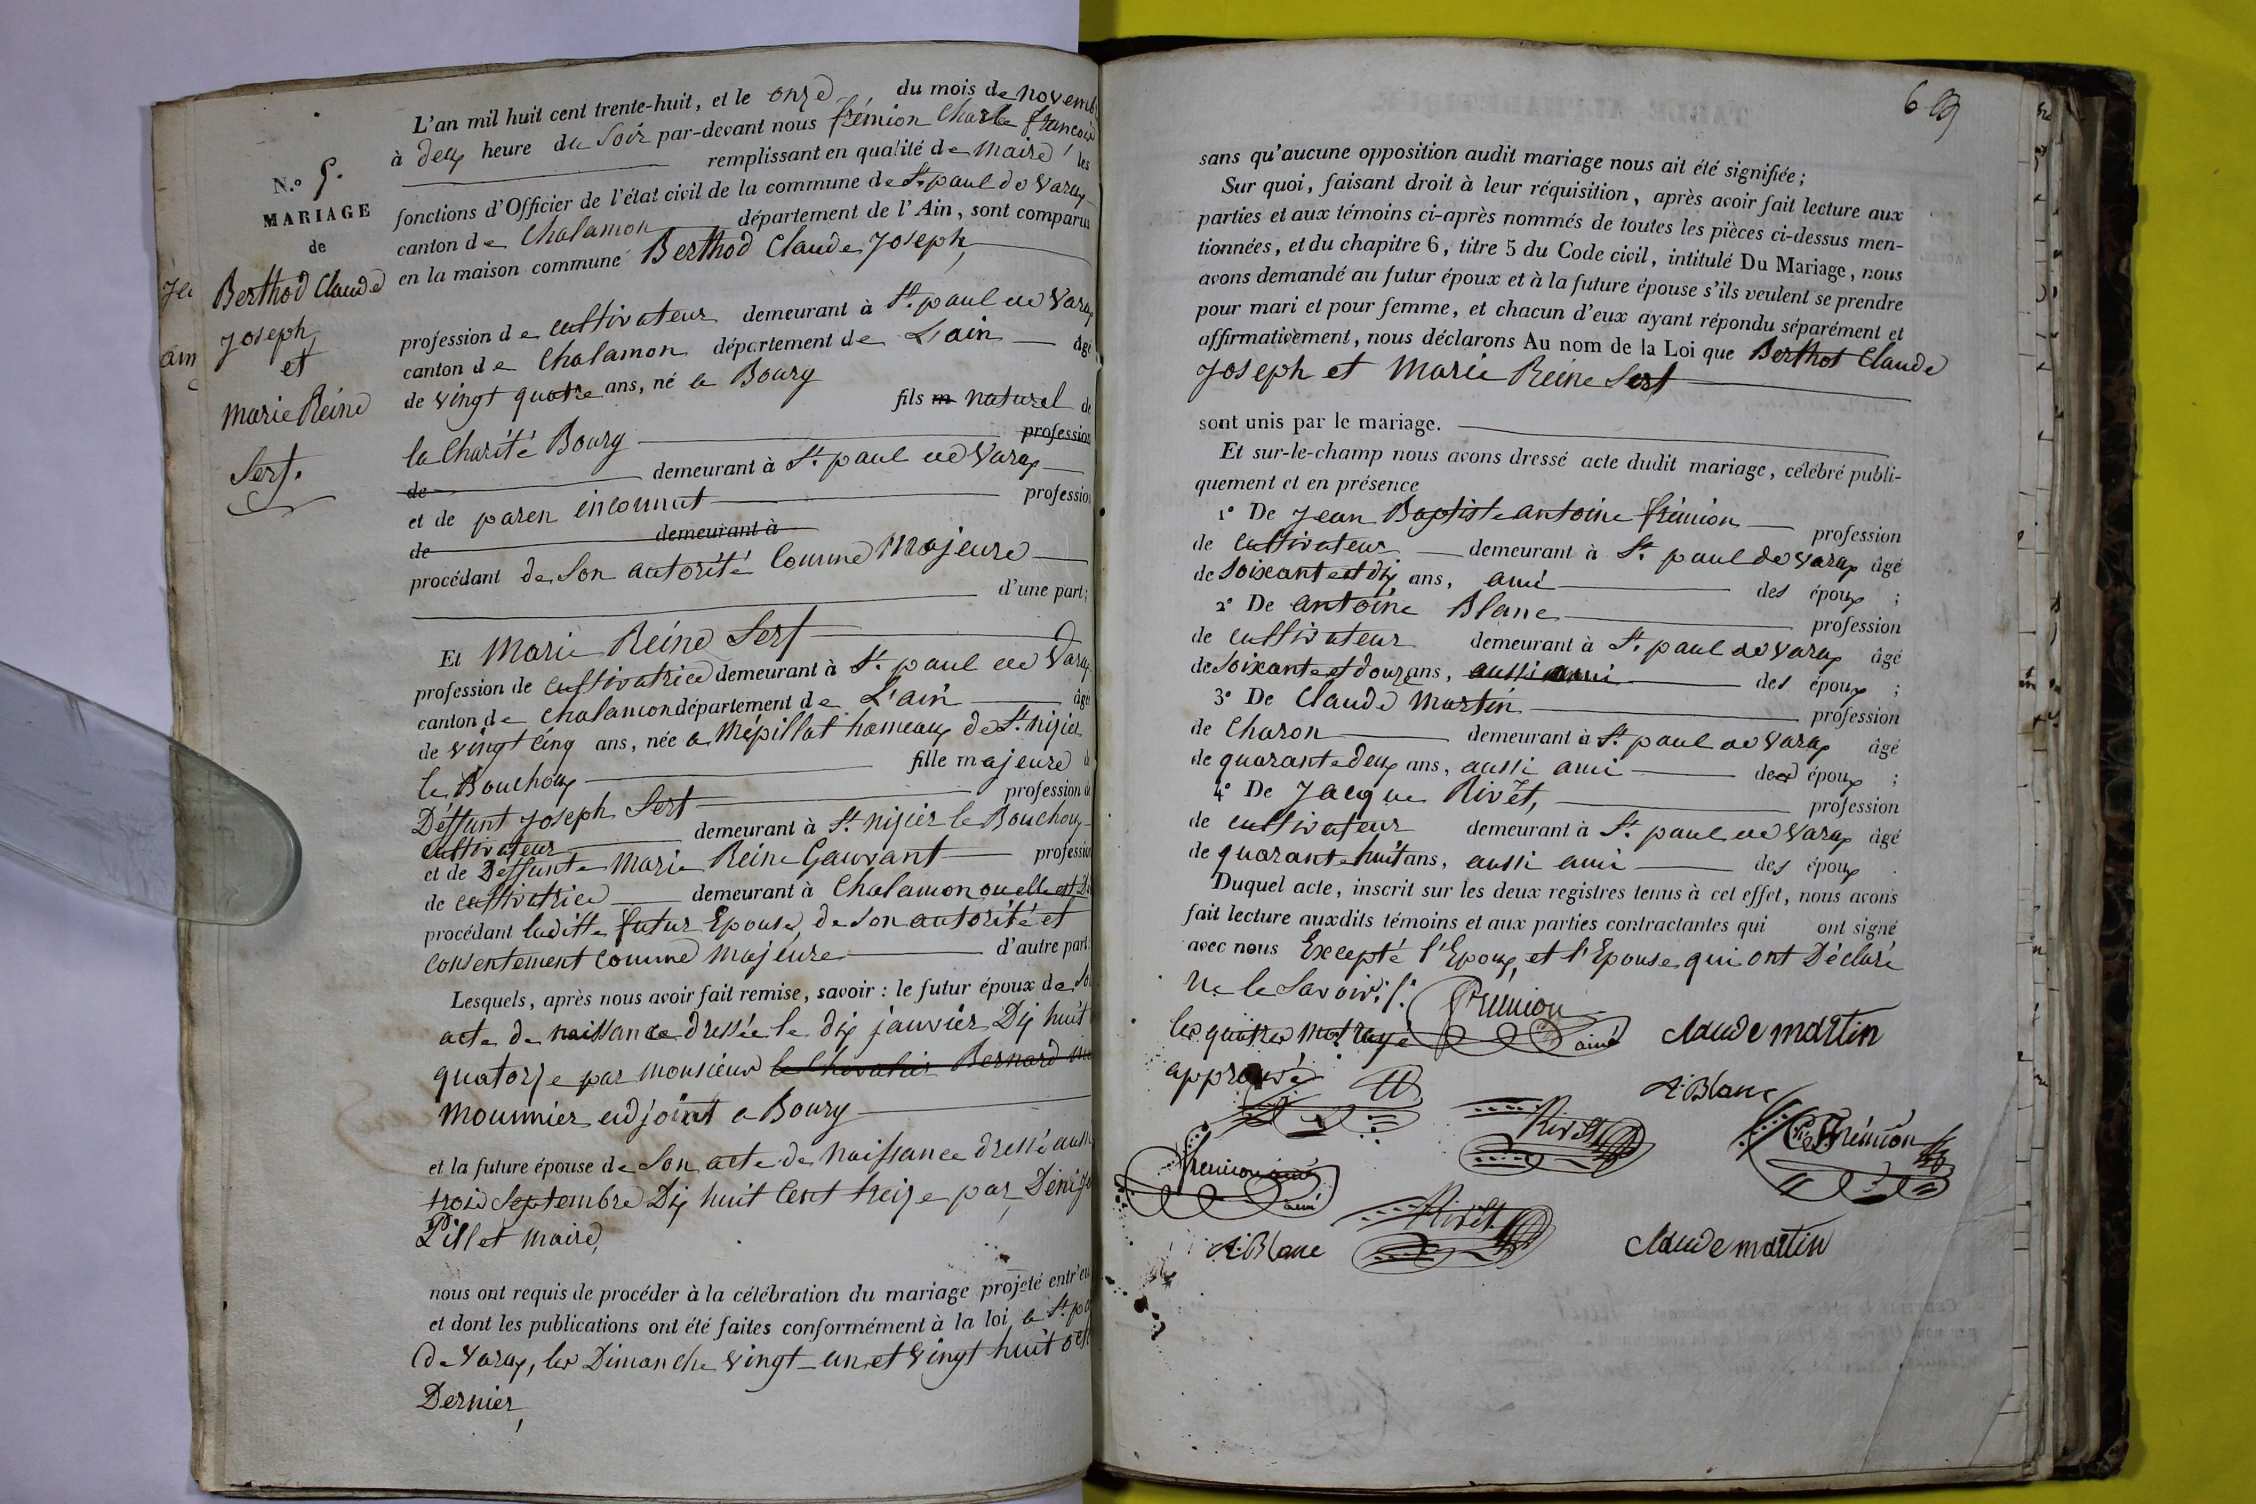 N.º 5.
MARIAGE
de
Berthod Claude
Joseph
et
Marie Reine
Sert.
L'an mil huit cent trente-huit, et le onze du mois de novemb
à deux heure du Soir par-devant nous frémion Charle françois
remplissant en qualité de maire, les
fonctions d'Officier de l'état civil de la commune de St. paul de Varax
canton de Chalamon département de l'Ain, sont comparus
en la maison commune Berthod Claude Joseph,
profession de cultivateur demeurant à St. paul de Varax
canton de Chalamon département de L'ain âgé
de vingt quatre ans, né a Bourg
fils m naturel de
la Charité Bourg profession
de demeurant à St. paul de Varax
et de paren inconnut profession
de demeurant à
procédant de Son autorité Comme Majeure
d'une part;
Et Marie Reine Sert
profession de cultivatrice demeurant à St. paul de Varax
canton de Chalamon département de L'ain âgé
de vingt cinq ans, née a Mépillat hameaux de St. Nizier
le Bouchoux fille majeure de
Déffunt Joseph Sert profession de
cultivateur demeurant à St. Nizier le Bouchoux
et de Deffunte Marie Reine Gauvant profession
de cultivatrice demeurant à Chalamon ou elle est
procédant laditte futur Epouse, de Son autorité et
consentement comme Majeure d'autre part.
Lesquels, après nous avoir fait remise, savoir : le futur époux de So
acte de naissance dressée le dix janvier Dix huit
quatorze par monsieur le Chevalier Bernard
Mounnier adjoint a Bourg
et la future épouse de Son acte de Naissance dressé aussi
trois Septembre Dix huit Cent treize par Dénize
Pillet maire,
nous ont requis de procéder à la célébration du mariage projeté entr'eu
et dont les publications ont été faites conformément à la loi, a St. pa
de Varax, les Dimanche vingt-un et vingt huit oct
Dernier,
69
sans qu'aucune opposition audit mariage nous ait été signifiée ;
Sur quoi, faisant droit à leur réquisition, après avoir fait lecture aux
parties et aux témoins ci-après nommés de toutes les pièces ci-dessus men-
tionnées, et du chapitre 6, titre 5 du Code civil, intitulé Du Mariage, nous
avons demandé au futur époux et à la future épouse s'ils veulent se prendre
pour mari et pour femme, et chacun d'eux ayant répondu séparément et
affirmativement, nous déclarons Au nom de la Loi que Berthot Claude
Joseph et Marie Reine Sert
sont unis par le mariage.
Et sur-le-champ nous avons dressé acte dudit mariage, célébré publi-
quement et en présence
1º De Jean Baptiste antoine frémion profession
de cultivateur demeurant à St. paul de Varax âgé
de Soixante et dix ans, ami des époux ;
2º De antoine Blanc profession
de cultivateur demeurant à St. paul de Varax âgé
de Soixante et douze ans, aussi ami des époux ;
3º De Claude Martin profession
de Charon demeurant à St. paul de Varax âgé
de quarante deux ans, aussi ami des époux ;
4º De Jacque Rivet, profession
de cultivateur demeurant à St. paul de Varax âgé
de quarante huit ans, aussi ami des époux .
Duquel acte, inscrit sur les deux registres tenus à cet effet, nous avons
fait lecture auxdits témoins et aux parties contractantes qui ont signé
avec nous Excepté l'Epoux et l'Epouse qui ont Déclaré
Ne le Savoir.
les quatres mot rayé
approuvé
fremion
ainé
Claude martin
A. Blanc
Rivet
Ch. Frémion
fremion ainé
ainé
A. Blanc
Rivet
Claude martin